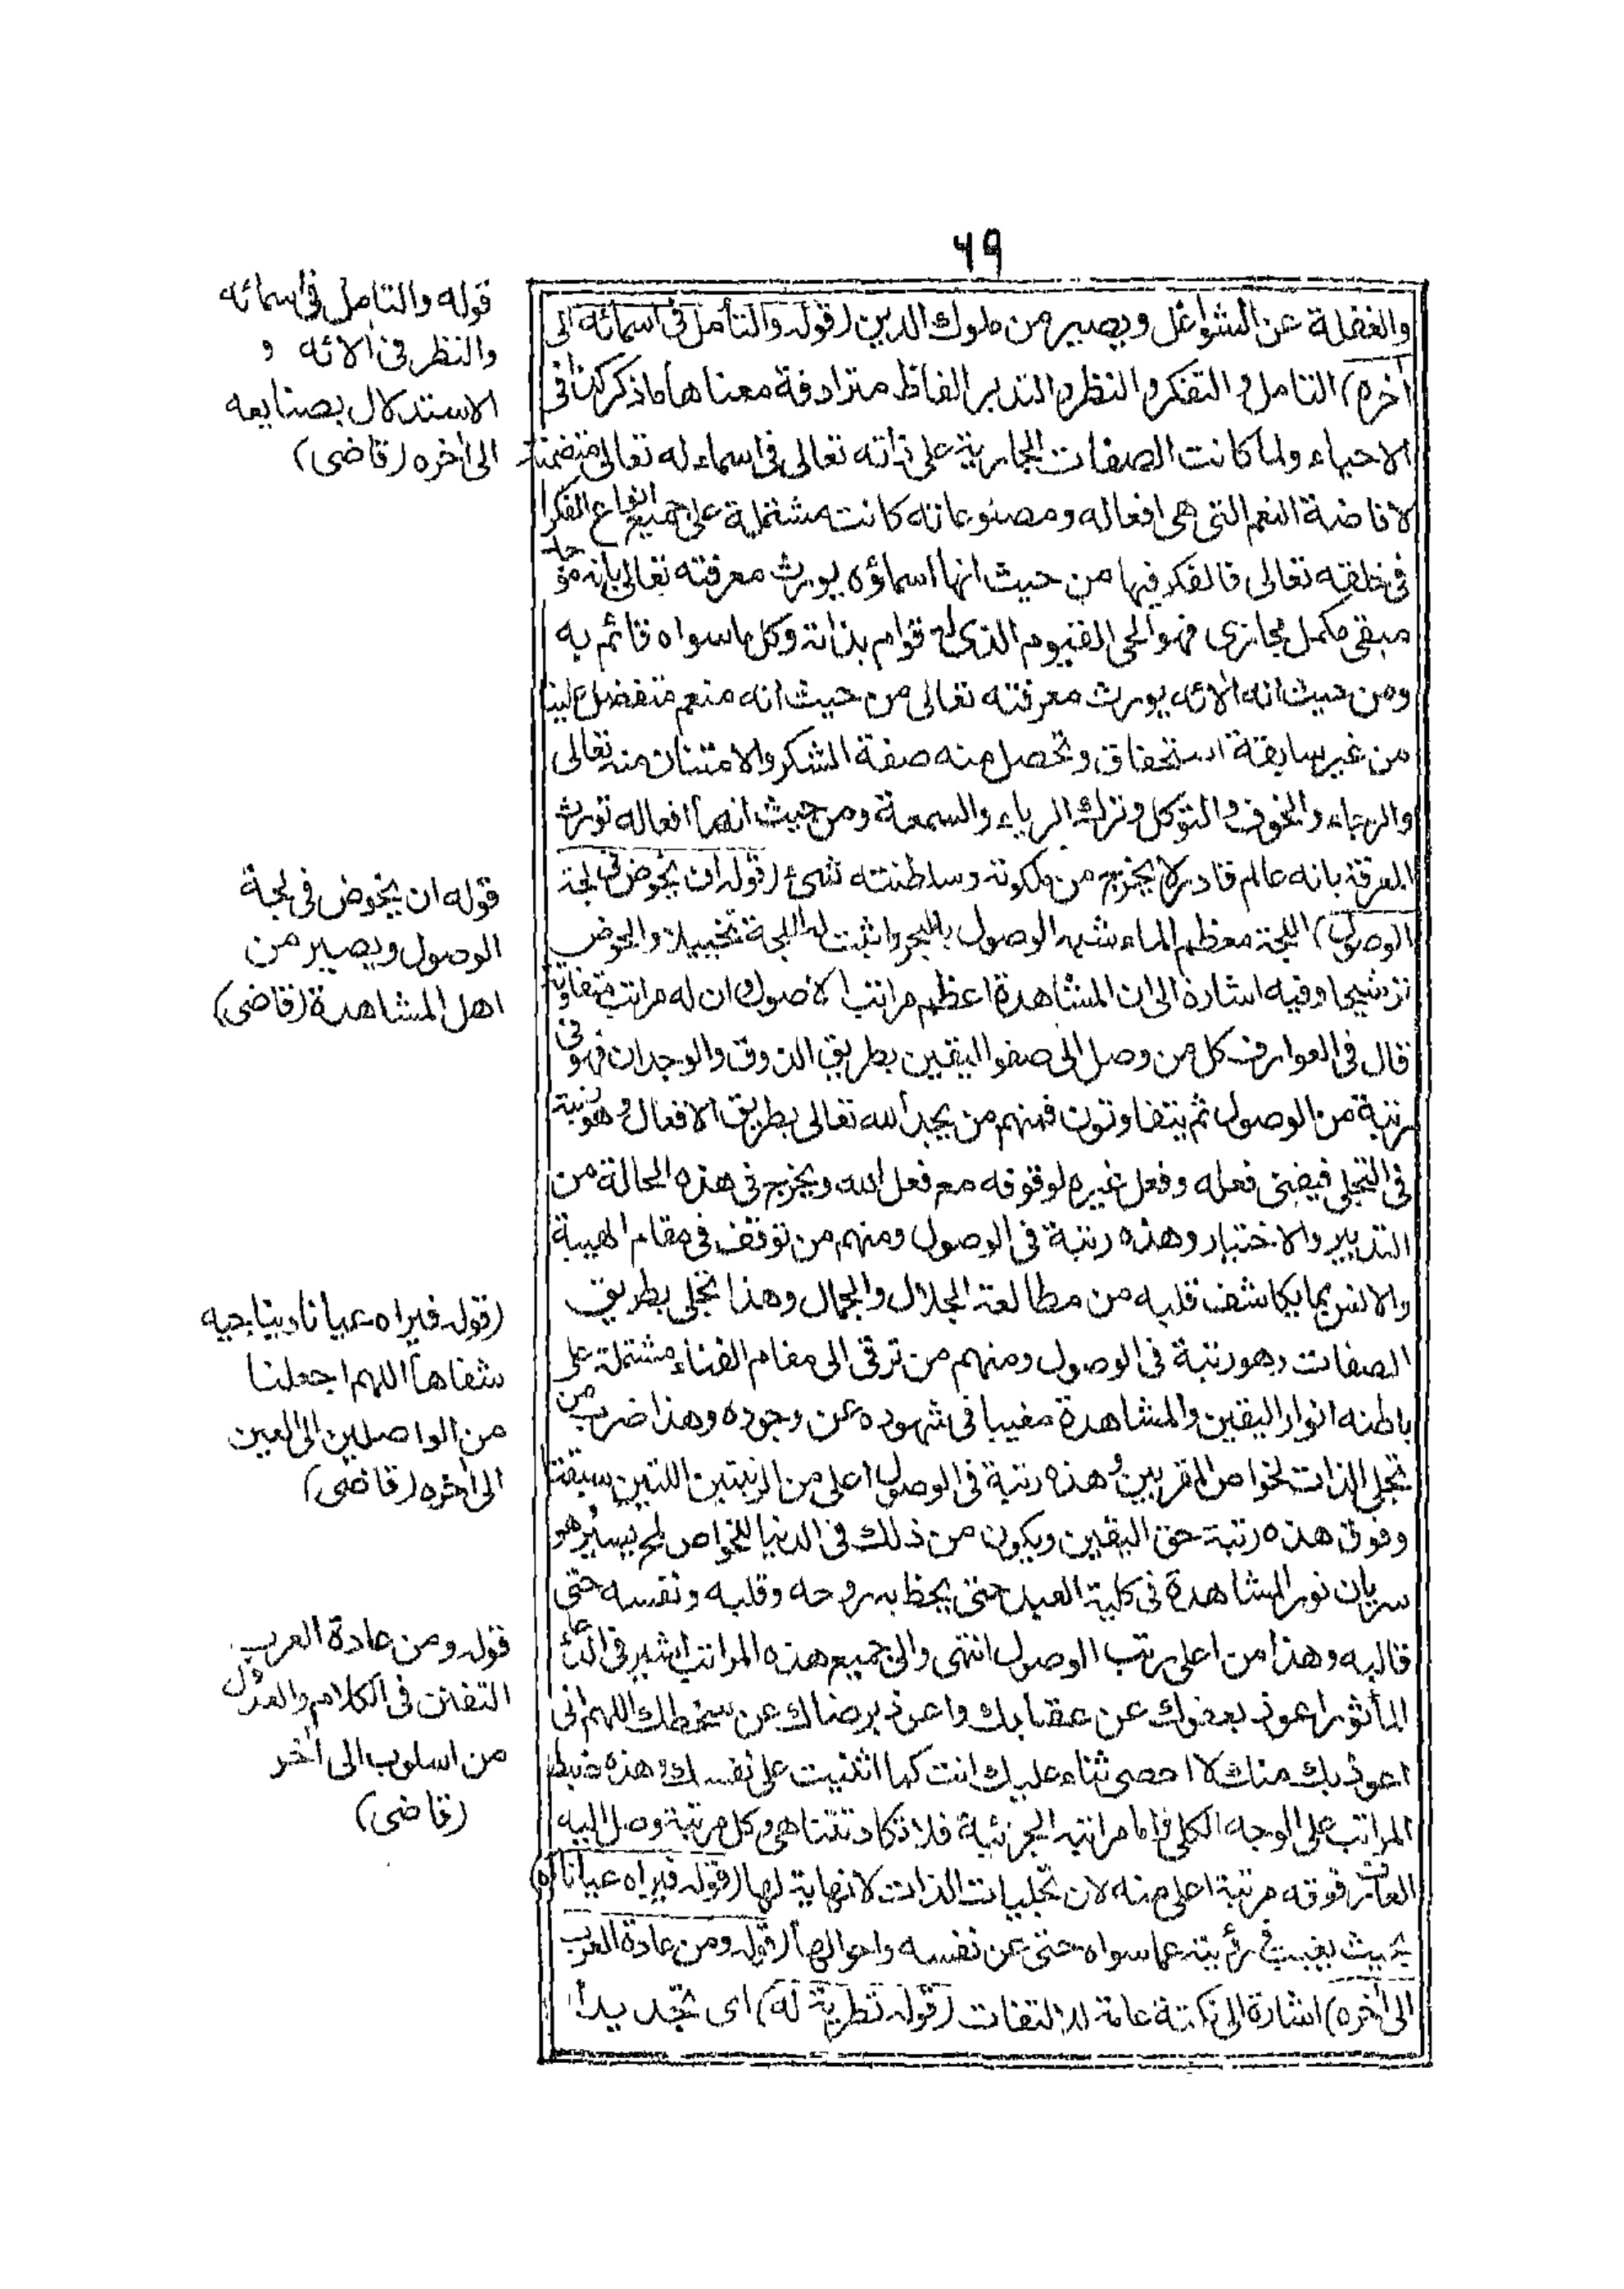 ٦٩
والغفلة عن الشواغل ويصير من ملوك الدين (قوله والتأمل فى اسمائه الى
آخره) التامل و التفكر و النظر و التدبر الفاظ مترادفة معناها ما ذكر كذا فى
الاحياء ولما كانت الصفات الجارية على ذاته تعالى فى اسماء له تعالى متضمنة
لافاضة النعم التى هى افعاله ومصنوعاته كانت مشتملة على جميع انواع الفكر
فى خلقته تعالى فالفكر فيها من حيث انها اسماؤه يورث معرفته تعالى بانه موجد
مبقى مكمل مجازى فهو الحى القيوم الذى له قوام بذاته وكل ماسواه قائم به
ومن حيث انه آلائه يورث معرفته تعالى من حيث انه منعم متفضل علينا
من غير سابقة استحقاق وتحصل منه صفة الشكر والامتنان منه تعالى
والرجاء والخوف والتوكل وترك الرياء والسمعة ومن حيث انها افعاله تورث
المعرفة بانه عالم قادر لا يخرج من ملكوته وسلطنته شئ (قوله ان يخوض فى لجة
الوصول) اللجة معظم الماء شبه الوصول بالبحر واثبت له اللجة تخييلا والخوض
ترشيحا وفيه اشارة الى ان المشاهدة اعظم مراتب الاصول وان له مراتب متفاوتة
قال فى العوارف كل من وصل الى صفو اليقين بطريق الذوق والوجدان فهو فى
رتبة من الوصول ثم يتفاوتون فمنهم من يجد الله تعالى بطريق الافعال وهو رتبة
فى التجلى فيفنى فعله وفعل غيره لوقوفه مع فعل الله ويخرج فى هذه الحالة من
التدبير والاختيار وهذه رتبة فى الوصول ومنهم من توقف فى مقام الهيبة
والانس بما يكاشف قلبه من مطالعة الجلال والجمال وهذا تجلى بطريق
الصفات وهو رتبة فى الوصول ومنهم من ترقى الى مقام الفناء مشتملة على
باطنه انوار اليقين والمشاهدة مغيبا فى شهوده عن وجوده وهذا ضرب من
تجلى الذات لخواص المقربين وهذه رتبة فى الوصول اعلى من الرتبتين اللتين سبقتا
وفوق هذه رتبة حق اليقين ويكون من ذلك فى الدنيا للخواص لمح يسير هو
سريان نور المشاهدة فى كلية العبد حتى يحظ به روحه وقلبه ونفسه حتى
قالبه وهذا من اعلى رتب الوصول انتهى والى جميع هذه المراتب اشير فى الدعاء
المأثور اعوذ بعفوك عن عقابك واعوذ برضاك عن سخطك اللهم انى
اعوذ بك منك لا احصى ثناء عليك انت كما اثنيت على نفسك وهذه ضبط
المراتب على الوجه الكلى واما مراتبه الجزئية فلا تكاد تتناهى وكل مرتبة وصل اليه
العارف فوقه مرتبة اعلى منه لان تجليات الذات لا نهاية لها (قوله فيراه عيانا اه)
بحيث يغيب فى رؤيته عما سواه حتى عن نفسه واحوالها (قوله ومن عادة العرب
الى آخره) اشارة الى نكتة عامة للالتفات (قوله تطرية له) اى تجديدا
قوله والتامل فى اسمائه
والنظر فى آلائه و
الاستدلال بصنايعه
الى آخره (قاضى)
قوله ان يخوض فى لجة
الوصول ويصير من
اهل المشاهدة (قاضى)
(قوله فيراه عيانا ويناجيه
شفاها اللهم اجعلنا
من الواصلين الى العين
الى آخره (قاضى)
قوله ومن عادة العرب
التفنن فى الكلام والعدول
من اسلوب الى آخر
(قاضى)